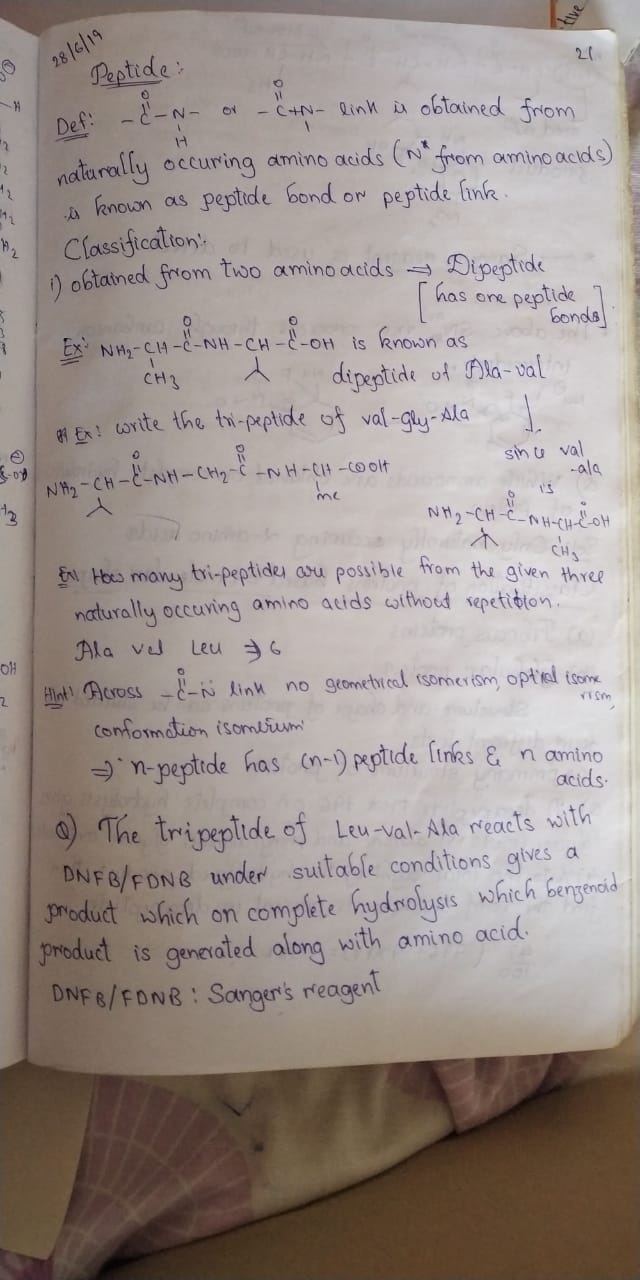 28/6/19
21
Peptide:
Def: -C-N- or -C+N- link is obtained from
O
H
naturally occuring amino acids (N* from amino acids)
is known as peptide bond or peptide link.
Classification:
i) obtained from two amino acids ⇒ Dipeptide
[has one peptide bonds]
Ex: NH2-CH-C-NH-CH-C-OH is known as
O O
CH3
dipeptide of Ala-val
Ex: write the tri-peptide of val-gly-Ala
since val
-ala
is
NH2-CH-C-NH-CH2-C-NH-CH-COOH
O O
me
NH2-CH-C-NH-CH-C-OH
O O
CH3
Ex How many tri-peptides are possible from the given three
naturally occuring amino acids without repetition.
Ala val Leu ⇒ 6
Hint: Across -C-N link no geometrical isomerism, optical isome
rism,
O
conformation isomerism
⇒ n-peptide has (n-1) peptide links & n amino
acids.
Q) The tripeptide of Leu-val-Ala reacts with
DNFB/FDNB under suitable conditions gives a
product which on complete hydrolysis which benzenoid
product is generated along with amino acid.
DNFB/FDNB: Sanger's reagent